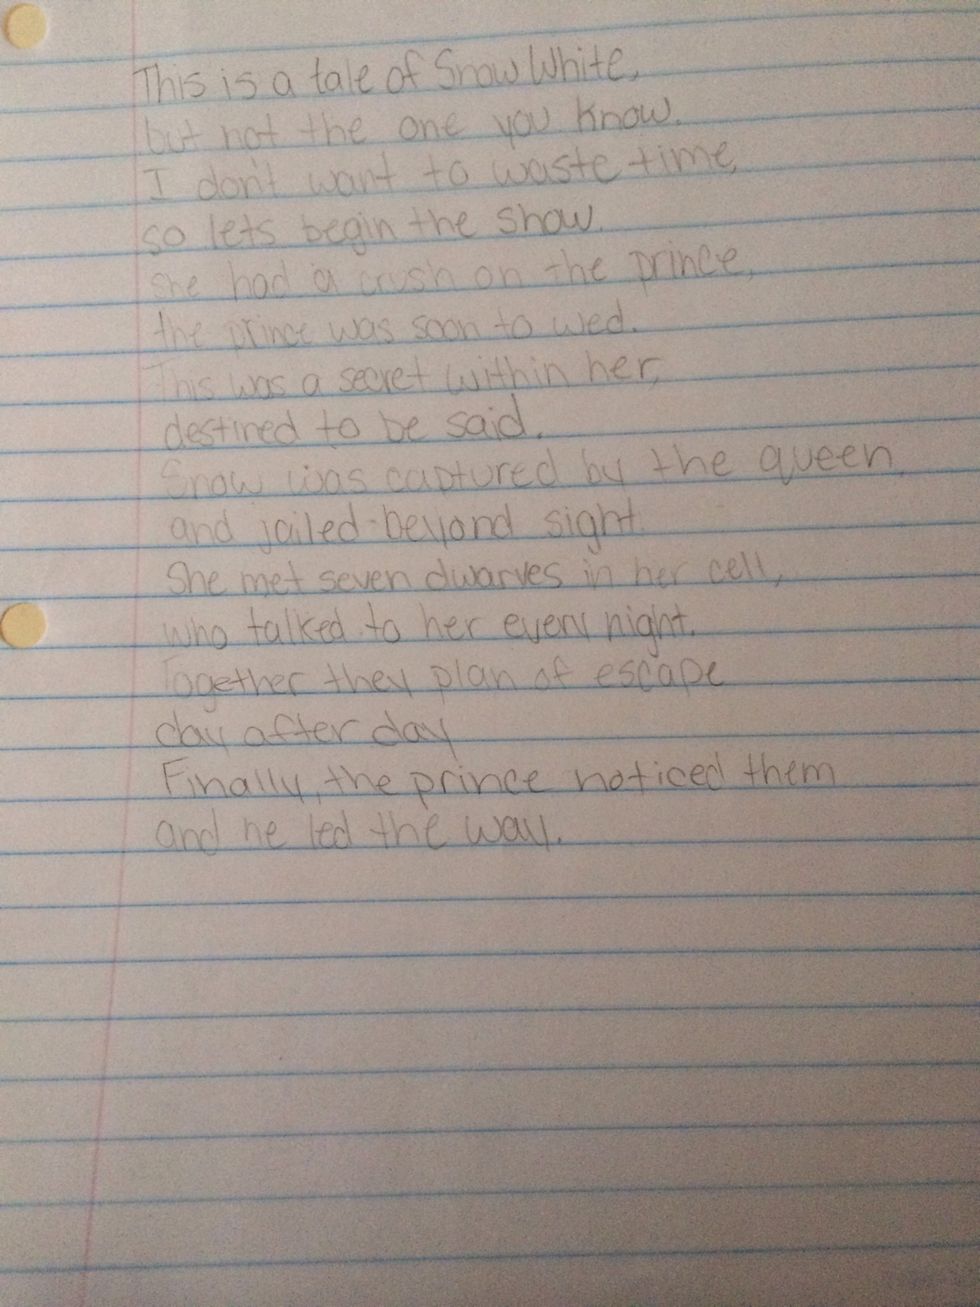 This is a tale of Snow White,
but not the one you know.
I don't want to waste time,
so lets begin the show.
She had a crush on the prince,
the prince was soon to wed.
This was a secret within her,
destined to be said.
Snow was captured by the queen
and jailed beyond sight.
She met seven dwarves in her cell,
who talked to her every night.
Together they plan of escape
day after day
Finally, the prince noticed them
and he led the way.